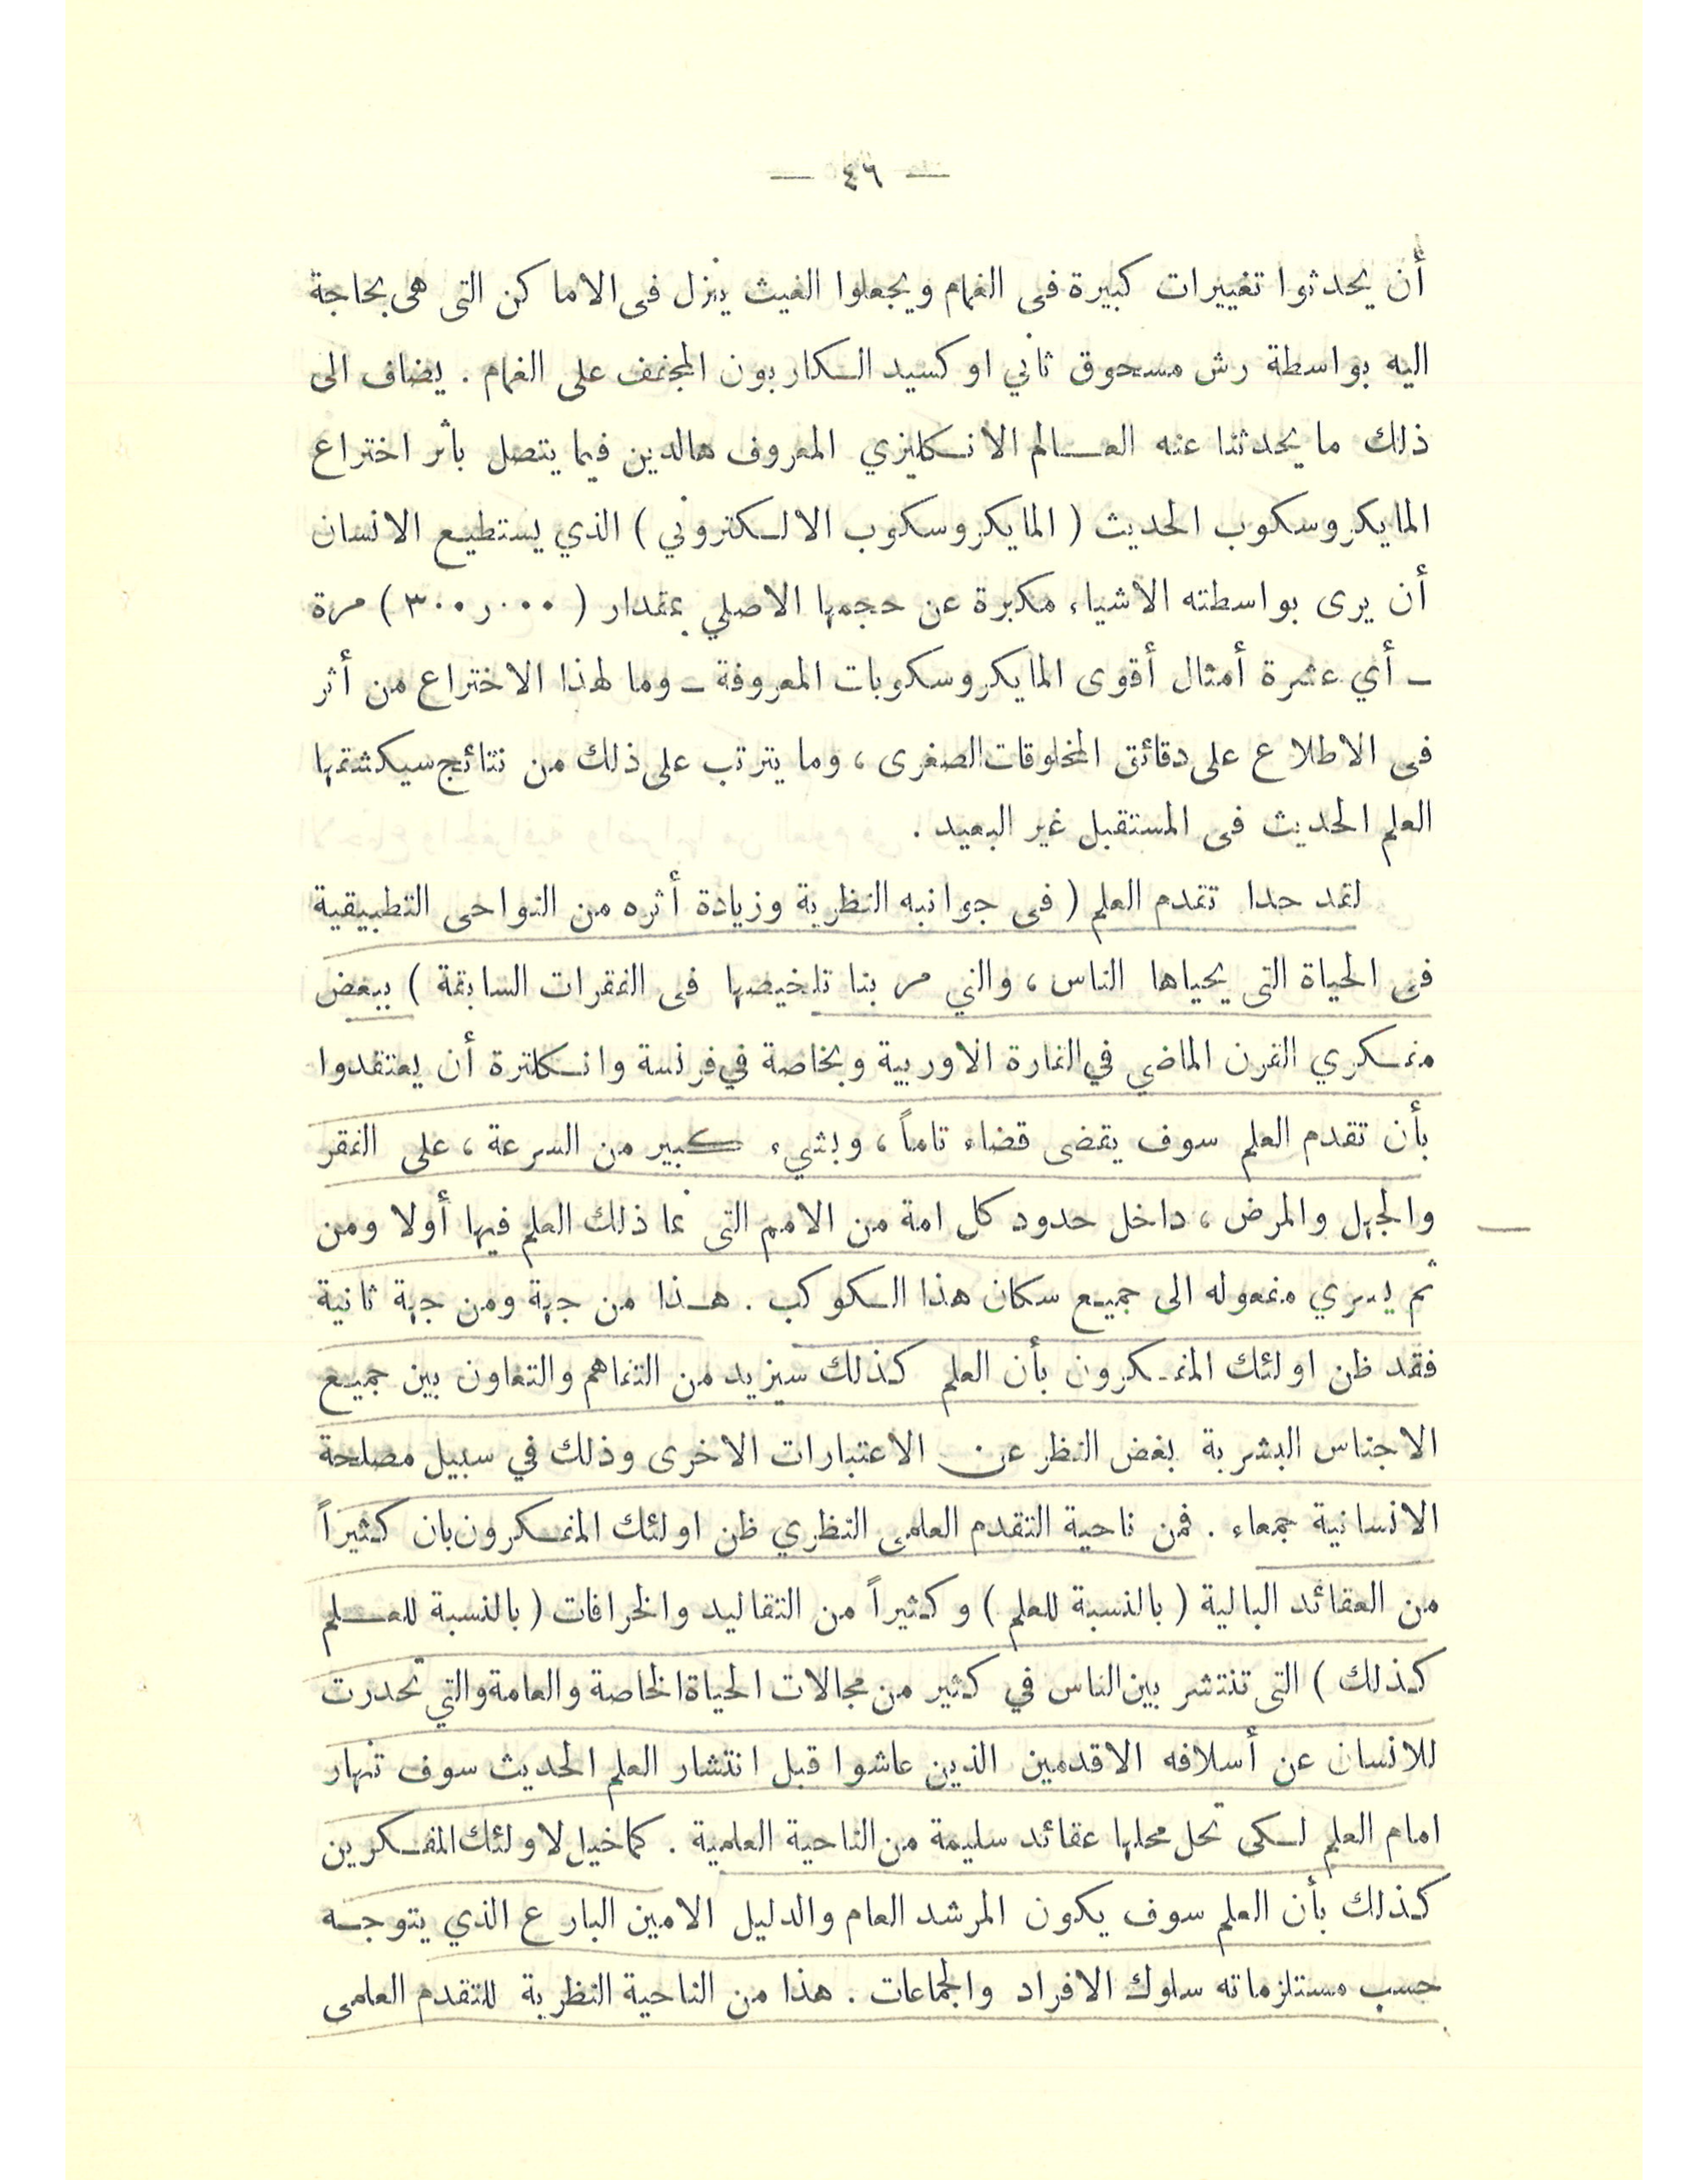 — ٤٦ —
أن يحدثوا تغييرات كبيرة فى الغمام ويجعلوا الغيث ينزل فى الاماكن التى هى بحاجة
اليه بواسطة رش مسحوق ثاني اوكسيد الكاربون المجفف على الغمام . يضاف الى
ذلك ما يحدثنا عنه العالم الانكليزي المعروف هالدين فيما يتصل بأثر اختراع
المايكروسكوب الحديث ( المايكروسكوب الالكتروني ) الذي يستطيع الانسان
أن يرى بواسطته الاشياء مكبرة عن حجمها الاصلي بمقدار ( ٣٠٠ر٠٠٠ ) مرة
ـ أي عشرة أمثال أقوى المايكروسكوبات المعروفة ـ وما لهذا الاختراع من أثر
فى الاطلاع على دقائق المخلوقات الصغرى ، وما يترتب على ذلك من نتائج سيكشتها
العلم الحديث فى المستقبل غير البعيد .
لقد حدا تقدم العلم ( فى جوانبه النظرية وزيادة أثره من النواحى التطبيقية
فى الحياة التى يحياها الناس ، والتي مر بنا تلخيصها فى الفقرات السابقة ) ببعض
مفكري القرن الماضي في القارة الاوربية وبخاصة في فرنسة وانكلترة أن يعتقدوا
بأن تقدم العلم سوف يقضى قضاء تاماً ، وبشيء كبير من السرعة ، على الفقر
والجهل والمرض ، داخل حدود كل امة من الامم التى نما ذلك العلم فيها أولا ومن
ثم يسري مفعوله الى جميع سكان هذا الكوكب . هذا من جهة ومن جهة ثانية
فقد ظن اولئك المفكرون بأن العلم كذلك سيزيد من التفاهم والتعاون بين جميع
الاجناس البشرية بغض النظر عن الاعتبارات الاخرى وذلك في سبيل مصلحة
الانسانية جمعاء . فمن ناحية التقدم العلمى النظري ظن اولئك المفكرون بان كثيراً
من العقائد البالية ( بالنسبة للعلم ) وكثيراً من التقاليد والخرافات ( بالنسبة للعلم
كذلك ) التى تنتشر بين الناس في كثير من مجالات الحياة الخاصة والعامة والتي تحدرت
للانسان عن أسلافه الاقدمين الذين عاشوا قبل انتشار العلم الحديث سوف تنهار
امام العلم لكى تحل محلها عقائد سليمة من الناحية العلمية . كما خيل لاولئك المفكرين
كذلك بأن العلم سوف يكون المرشد العام والدليل الامين البارع الذي يتوجه
حسب مستلزماته سلوك الافراد والجماعات . هذا من الناحية النظرية للتقدم العلمى